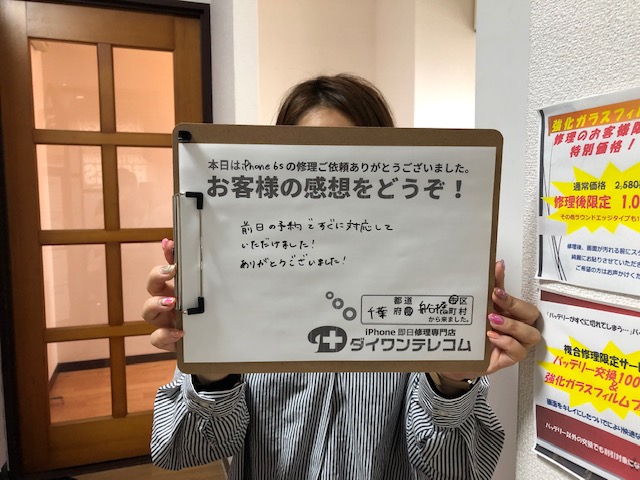 本日はiPhone 6sの修理ご依頼ありがとうございました。
お客様の感想をどうぞ！
前日の予約ですぐに対応して
いただけました！
ありがとうございました！
千葉 都道府県 船橋 市区町村
から来ました。
iPhone 即日修理専門店
ダイワンテレコム
強化ガラスフィル
修理のお客様限
特別価格！
通常価格 2,580
修理後限定 1,0
その他ラウンドエッジタイプも
修理後、画面が汚れる前にス
綺麗にお貼りさせていただき
ご希望の方はお声がけくだ
「バッテリーがすぐに切れてしまう…」
複合修理限定サー
バッテリー交換100
&
強化ガラスフィルムプ
画面をキレイにしたついでにより快適な
バッテリー以外の交換でも割引対象にな